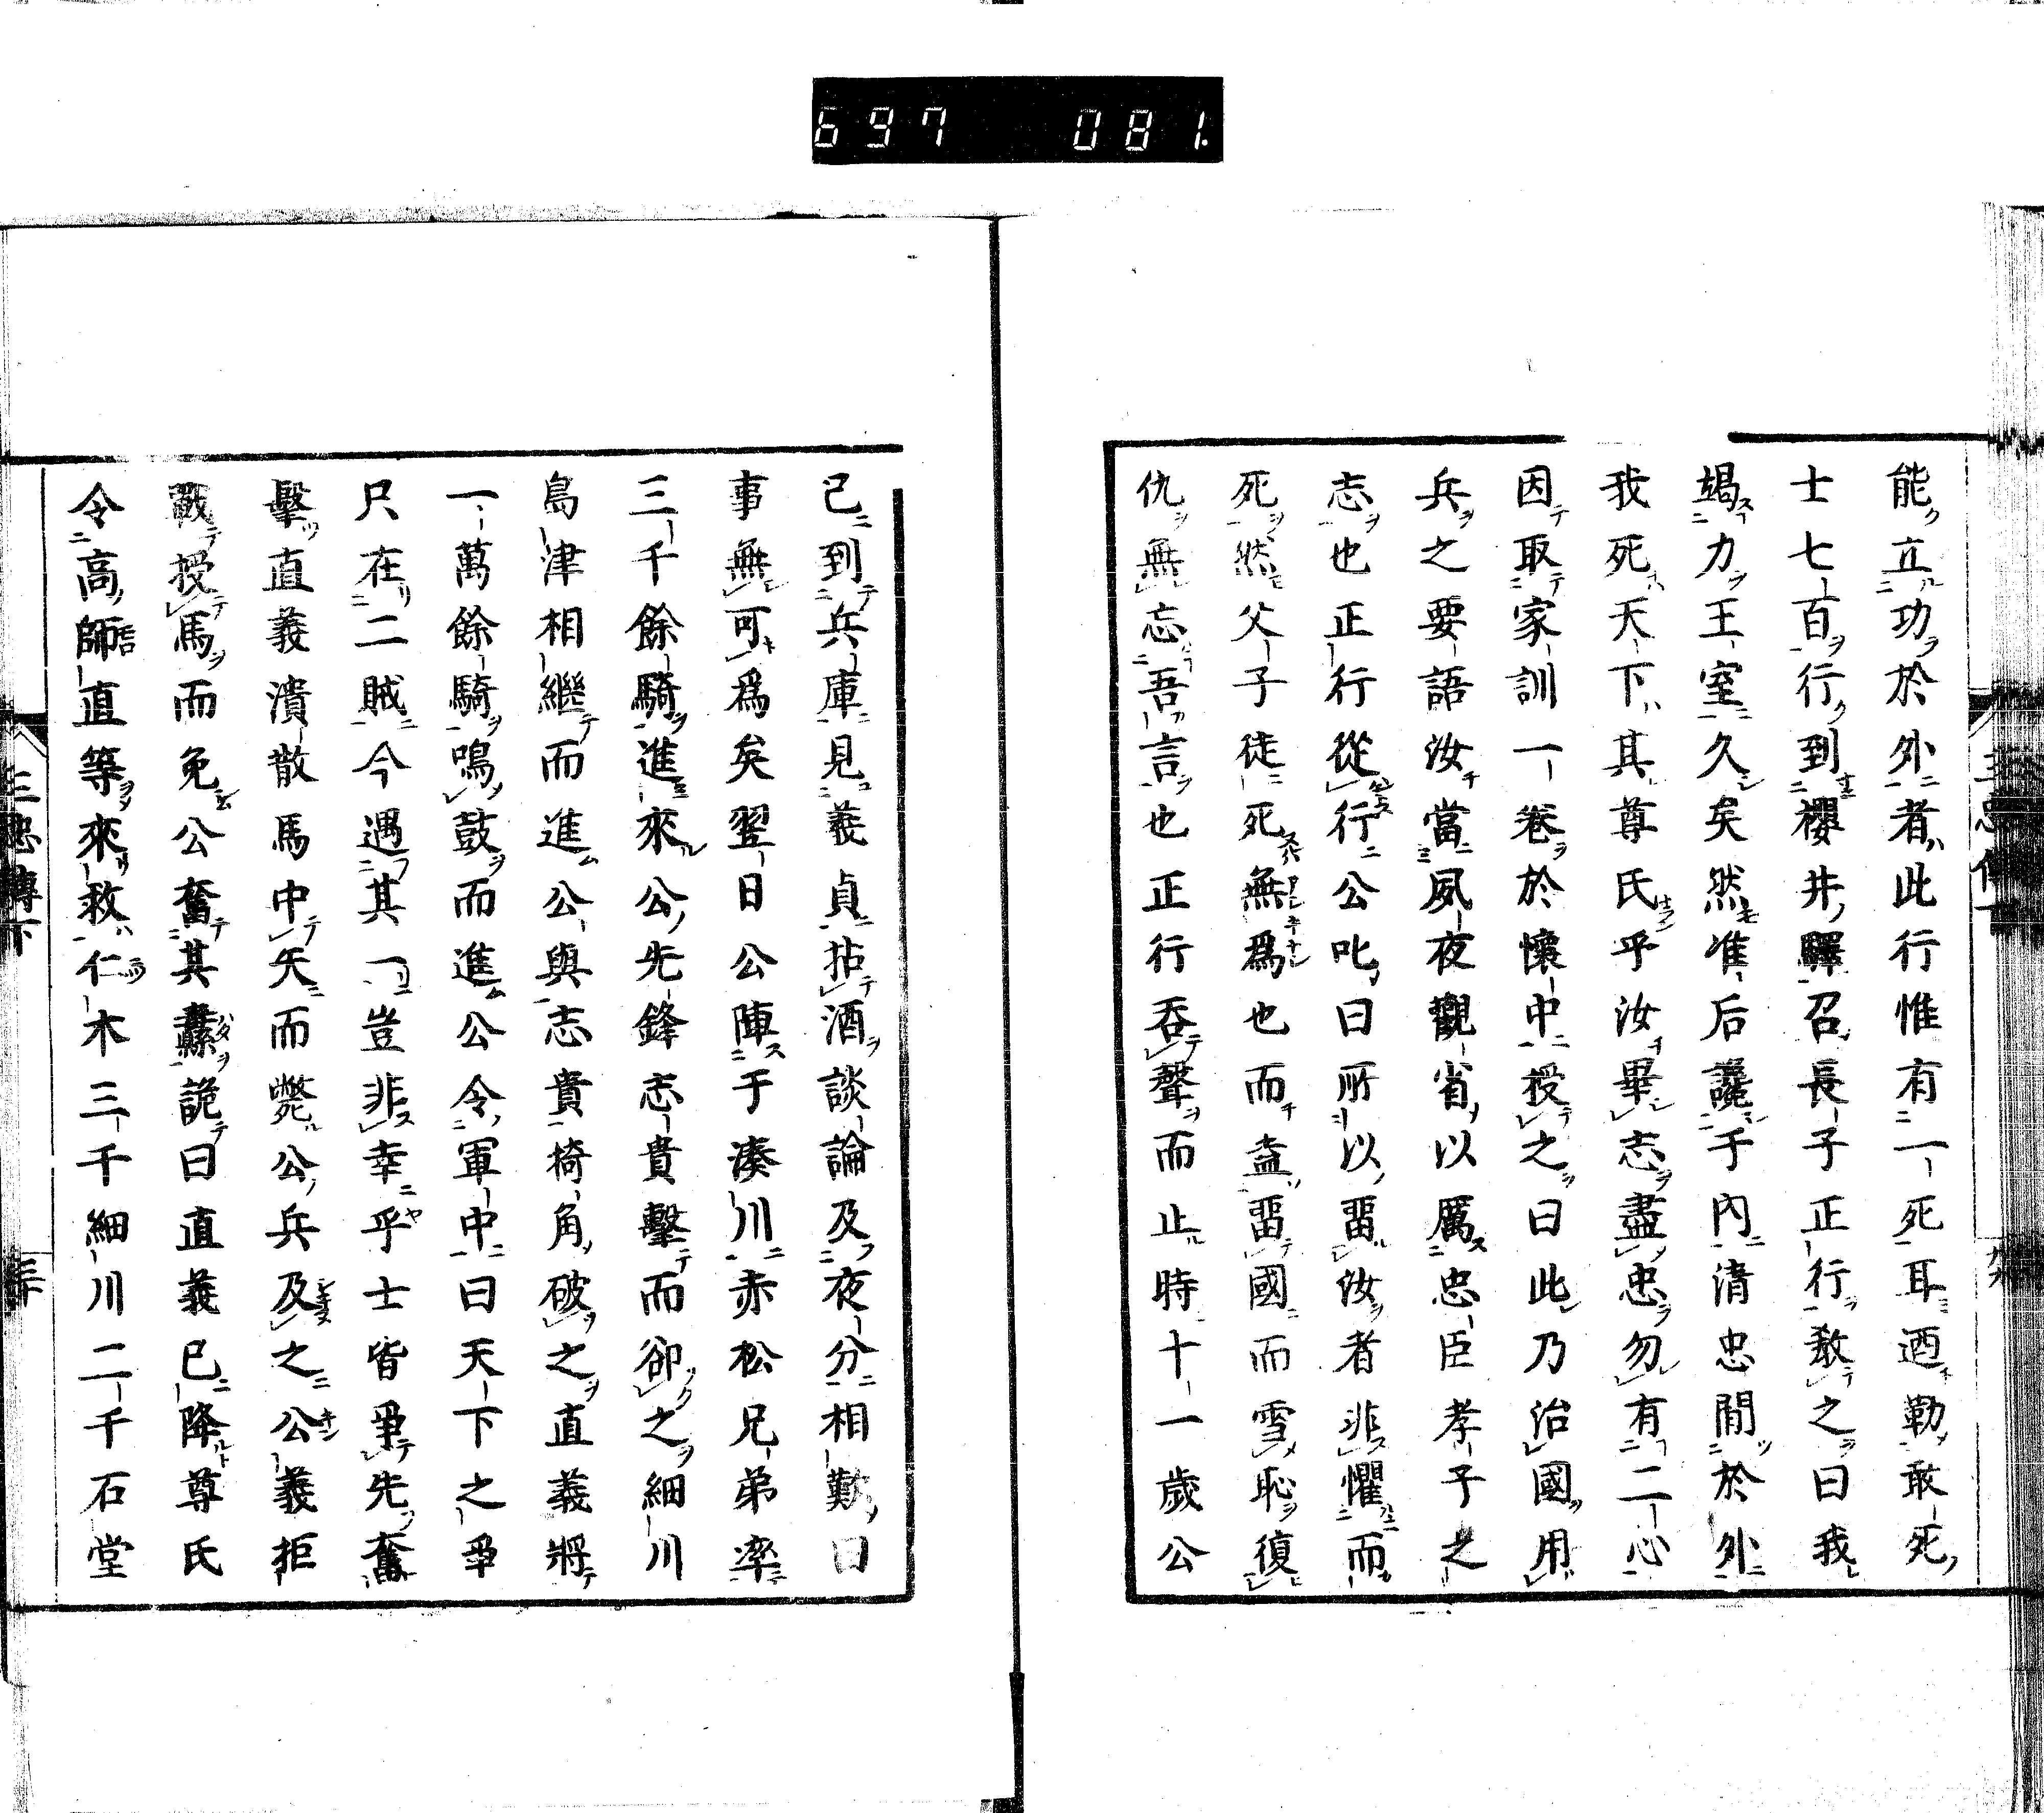 697 081.
能立功於外者此行惟有一死耳迺勒敢死
士七百行到櫻井驛召長子正行教之曰我
竭力王室久矣然准后讒于内清忠間於外
我死天下其尊氏乎汝畢志盡忠勿有二心
因取家訓一卷於懷中授之曰此乃治國用
兵之要語汝當夙夜觀省以厲忠臣孝子之
志也正行從行公叱曰所以畱汝者非懼而
死然父子徒死無爲也而盍畱國而雪恥復
仇無忘吾言也正行呑聲而止時十一歲公
已到兵庫見義貞拈酒談論及夜分相歎曰
事無可爲矣翌日公陣于湊川赤松兄弟率
三千餘騎進來公先鋒志貴擊而卻之細川
島津相繼而進公與志貴掎角破之直義將
一萬餘騎鳴鼓而進公令軍中曰天下之爭
只在二賊今遇其一豈非幸乎士皆爭先奮
擊直義潰散馬中矢而斃公兵及之公義拒
戰授馬而免公奮其纛詭曰直義已降尊氏
令高師直等來救仁木三千細川二千石堂
三忠傳下